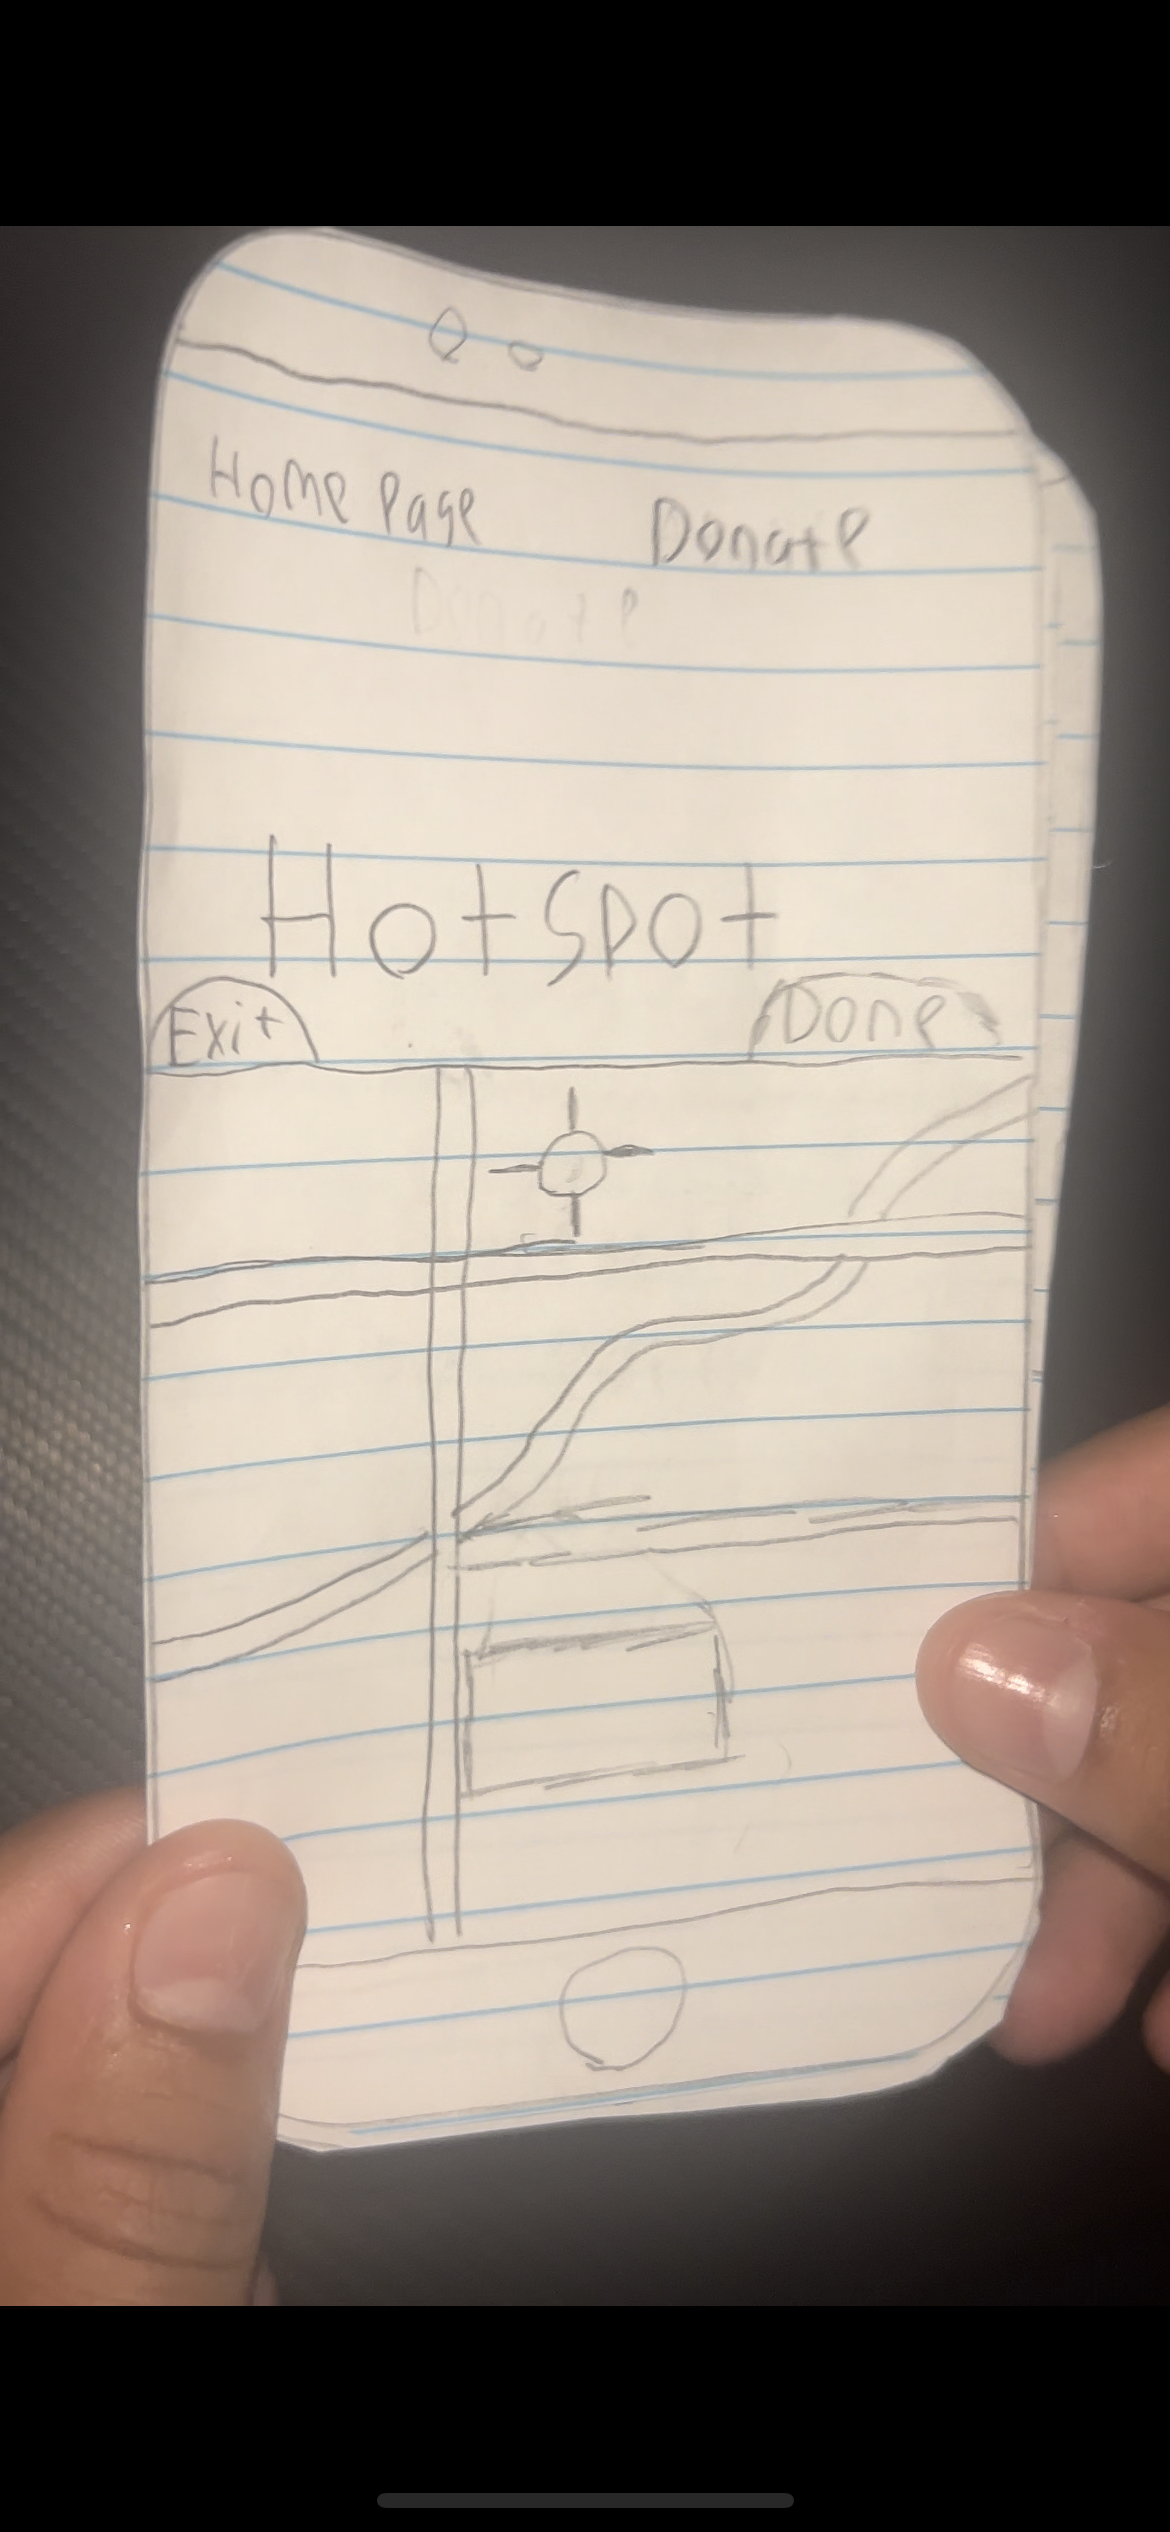 Home Page Donate
Donate
Hotspot
Exit Done